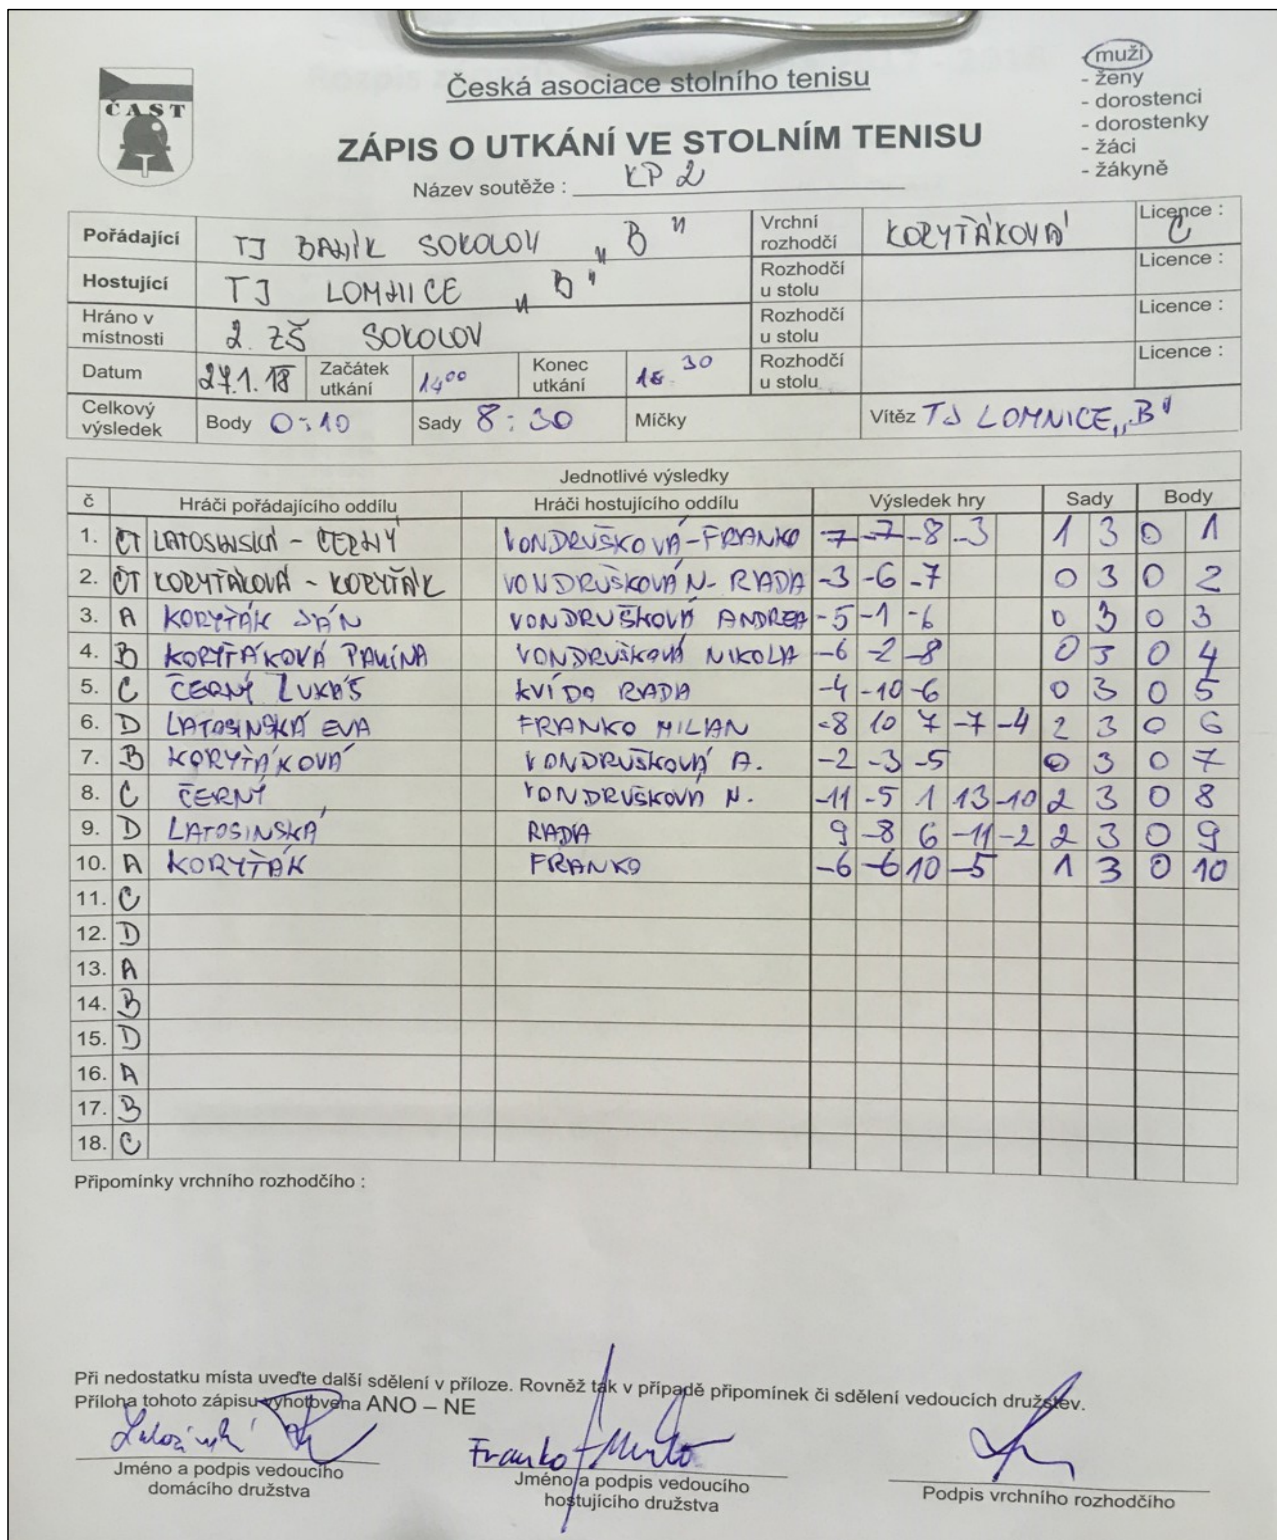 muži
- ženy
- dorostenci
- dorostenky
- žáci
- žákyně
ČAST
Česká asociace stolního tenisu
ZÁPIS O UTKÁNÍ VE STOLNÍM TENISU
Název soutěže : KP 2
Pořádající TJ BANÍK SOKOLOV „B" Vrchní rozhodčí KORYŤÁKOVÁ Licence : C
Hostující TJ LOMNICE „B" Rozhodčí u stolu Licence :
Hráno v místnosti 2. ZŠ SOKOLOV Rozhodčí u stolu Licence :
Datum 27.1.18 Začátek utkání 14 00 Konec utkání 16. 30 Rozhodčí u stolu Licence :
Celkový výsledek Body 0:10 Sady 8:30 Míčky Vítěz TJ LOMNICE „B"
Jednotlivé výsledky
č Hráči pořádajícího oddílu Hráči hostujícího oddílu Výsledek hry Sady Body
1. ČT LATOSINSKÁ - ČERNÝ VONDRUŠKOVÁ-FRANKO 7 -7 -8 -3 1 3 0 1
2. ČT KORYŤÁKOVÁ - KORYŤÁK VONDRUŠKOVÁ N- RADA -3 -6 -7 0 3 0 2
3. A KORYŤÁK JÁN VONDRUŠKOVÁ ANDREA -5 -1 -6 0 3 0 3
4. B KORYŤÁKOVÁ PAVÍNA VONDRUŠKOVÁ NIKOLA -6 -2 -8 0 3 0 4
5. C ČERNÝ LUKÁŠ KVÍDO RADA -4 -10 -6 0 3 0 5
6. D LATOSINSKÁ EVA FRANKO MILAN -8 10 7 -7 -4 2 3 0 6
7. B KORYŤÁKOVÁ VONDRUŠKOVÁ A. -2 -3 -5 0 3 0 7
8. C ČERNÝ VONDRUŠKOVÁ N. -11 -5 1 13 -10 2 3 0 8
9. D LATOSINSKÁ RADA 9 -8 6 -11 -2 2 3 0 9
10. A KORYŤÁK FRANKO -6 -6 10 -5 1 3 0 10
11. C
12. D
13. A
14. B
15. D
16. A
17. B
18. C
Připomínky vrchního rozhodčího :
Při nedostatku místa uveďte další sdělení v příloze. Rovněž tak v případě připomínek či sdělení vedoucích družstev.
Příloha tohoto zápisu vyhotovena ANO – NE
Franko
Jméno a podpis vedoucího
domácího družstva
Jméno a podpis vedoucího
hostujícího družstva
Podpis vrchního rozhodčího